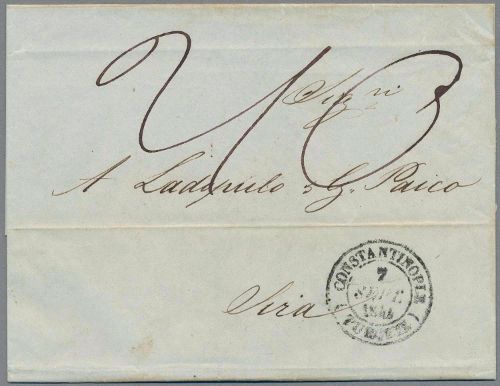 Sig.ri
A Ladopulo & G. Paico
Siria
CONSTANTINOPLE
7
SEPT.
1844
TURQUIE